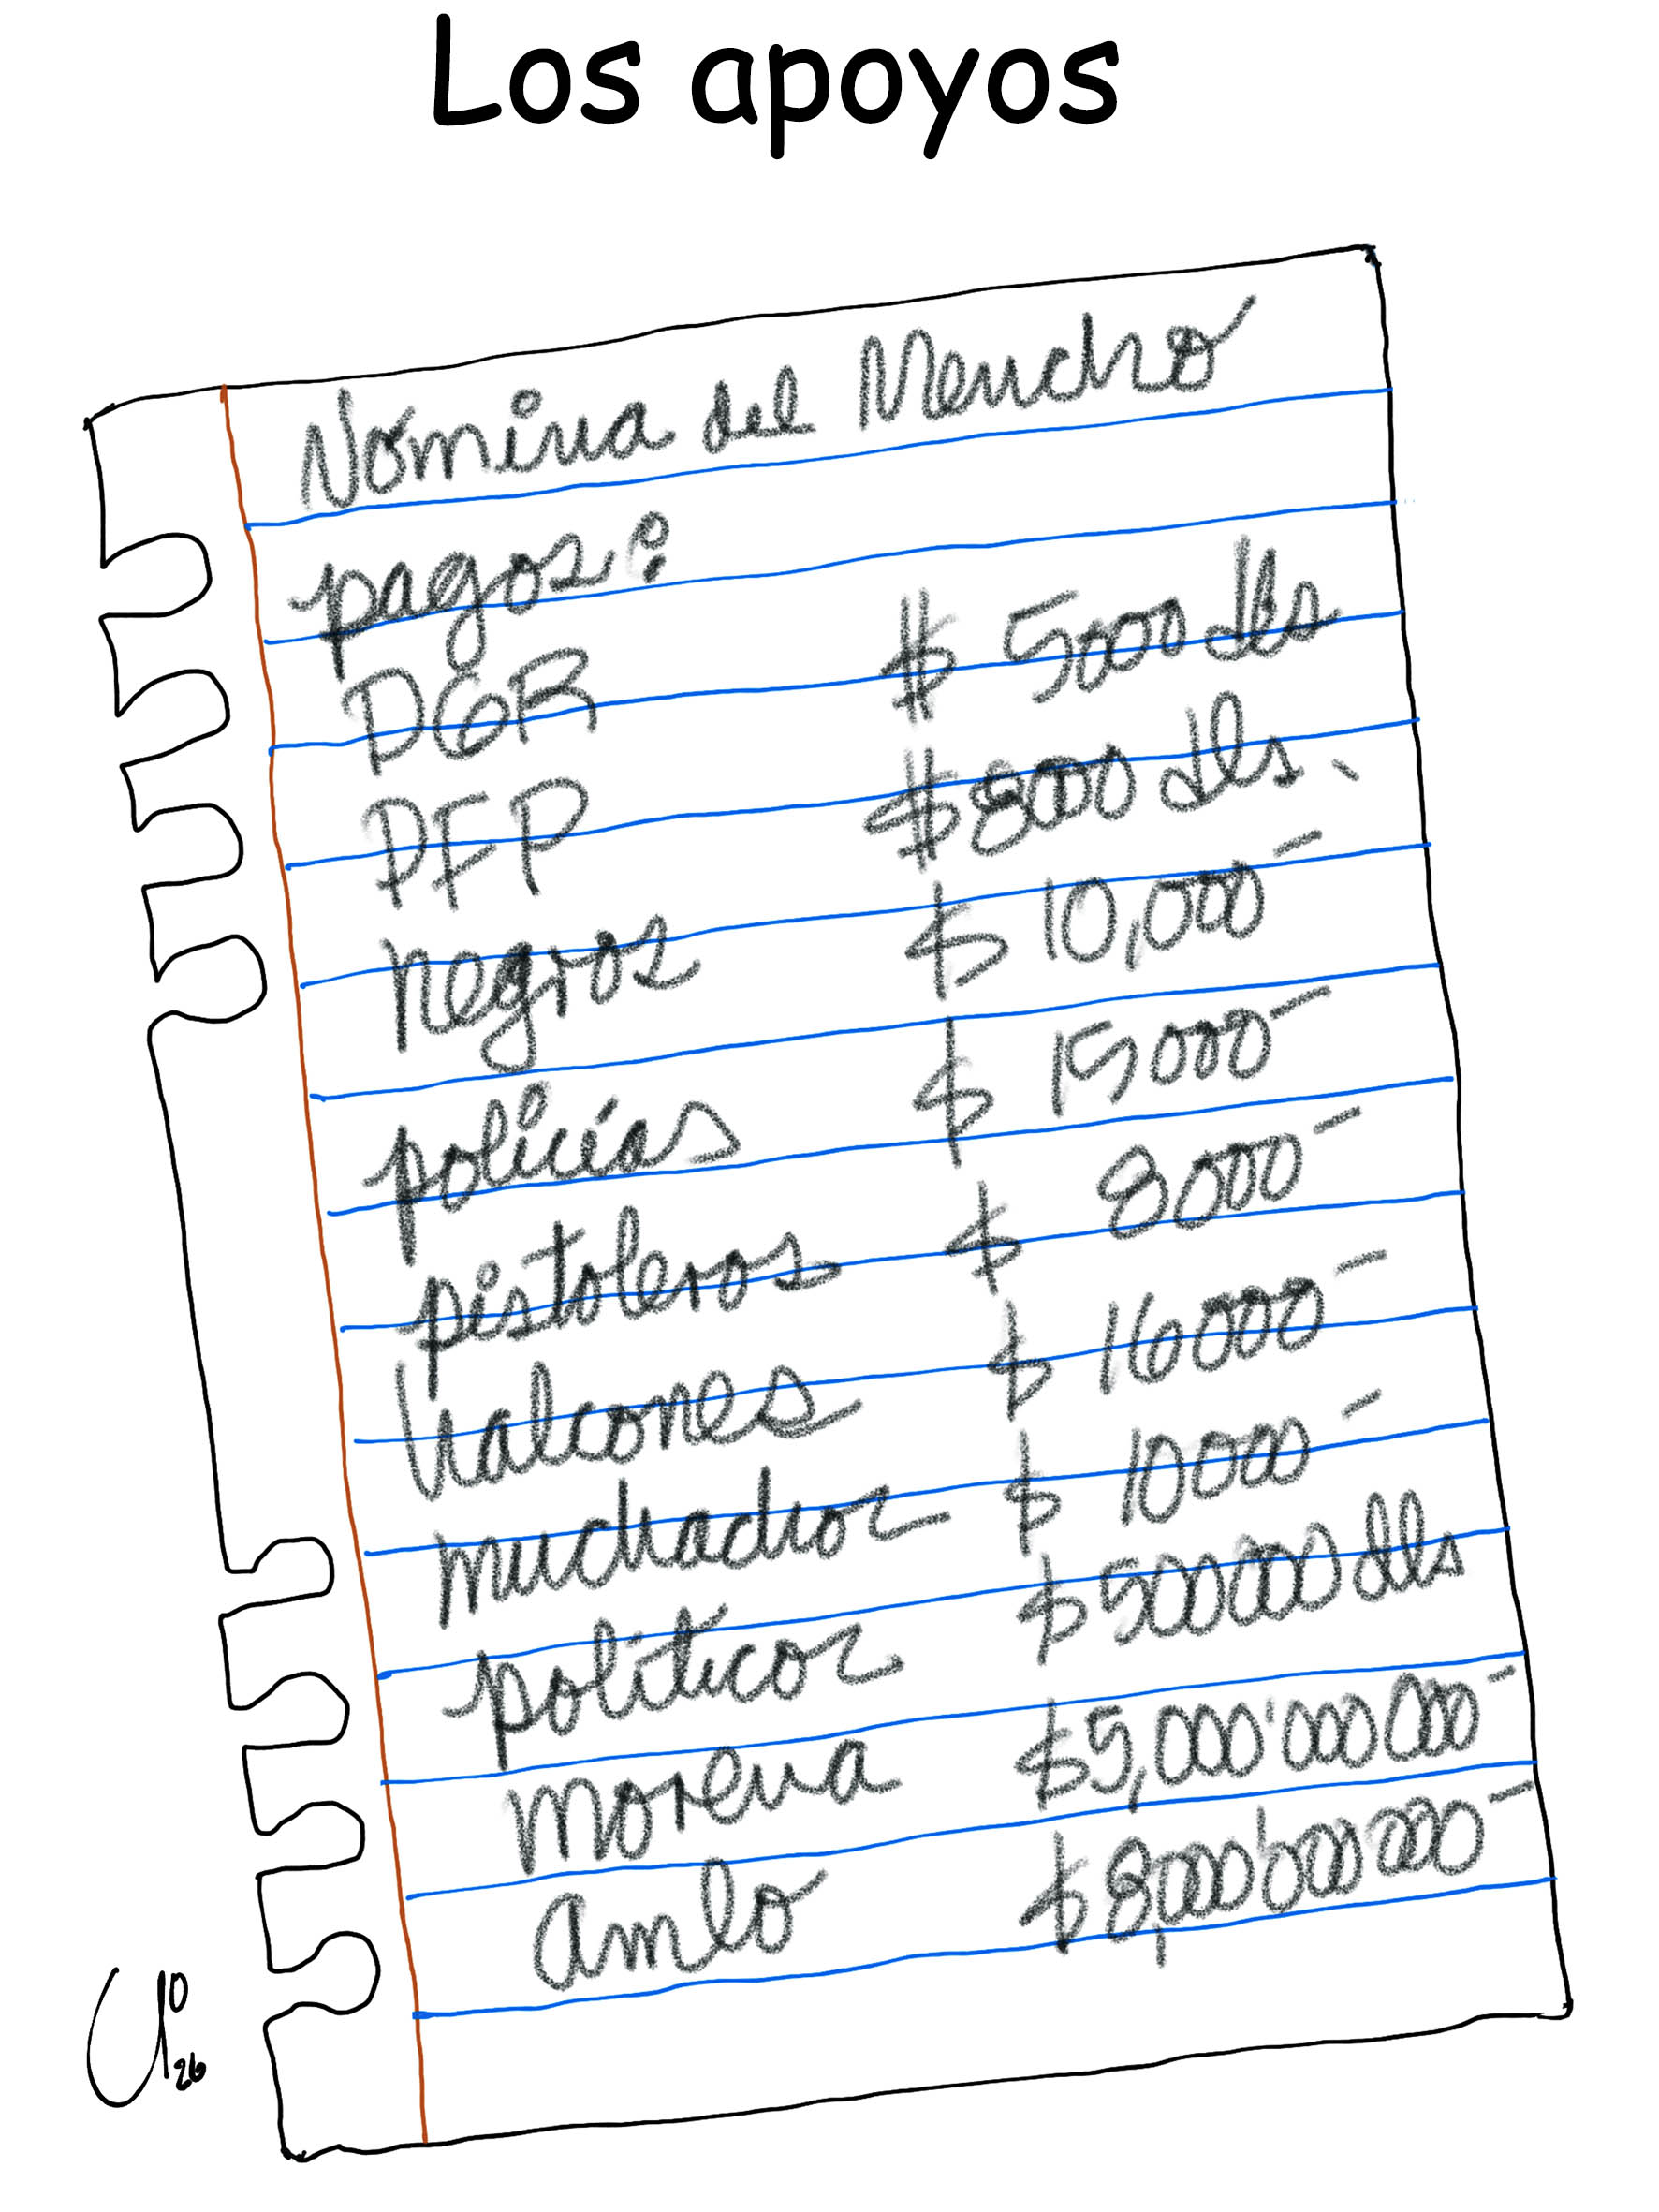 Los apoyos
Nómina del Mencho
pagos:
PGR $ 5000 dls
PFP $ 8000 dls.
negros $ 10,000 -
policías $ 15000 -
pistoleros $ 8000 -
halcones $ 16000 -
muchachos $ 10000 -
políticos $ 500000 dlls
morena $5,000'000000 -
amlo $8,000'000000 -
26